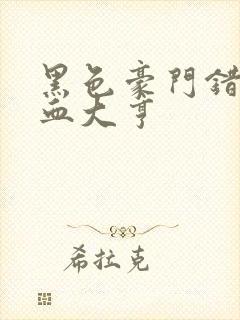 黑色豪門錯
血大亨
希拉克